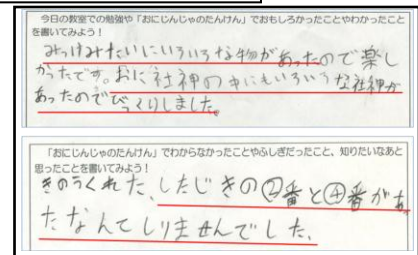 今日の教室での勉強や「おにじんじゃのたんけん」でおもしろかったことやわかったこと
を書いてみよう!
みっけみたいにいろいろな物があったので楽し
かったです。おに社神の中にもいろいろな社神が
あったのでびっくりしました。
「おにじんじゃのたんけん」でわからなかったことやふしぎだったこと、知りたいなあと
思ったことを書いてみよう!
きのうくれた、したじきの②番と④番があ
たなんてしりませんでした、